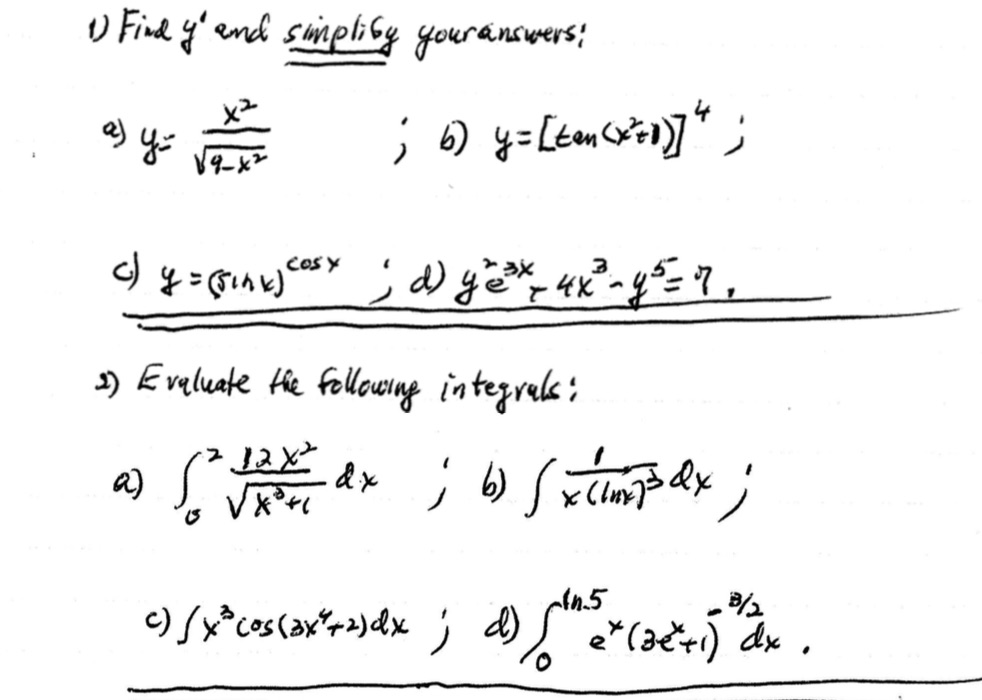 1) Find y' and simplify your answers:
a) y = x²/√(9-x²) ; b) y = [tan(x²+1)]⁴ ;
c) y = (sin x)^cos x ; d) y²e^(3x) - 4x³ - y⁵ = 7.
2) Evaluate the following integrals:
a) ∫₀² 12x²/√(x³+1) dx ; b) ∫ 1/(x(lnx)³) dx ;
c) ∫x³cos(3x⁴+2)dx ; d) ∫₀^(ln 5) e^x(3e^x+1)^(-3/2) dx .